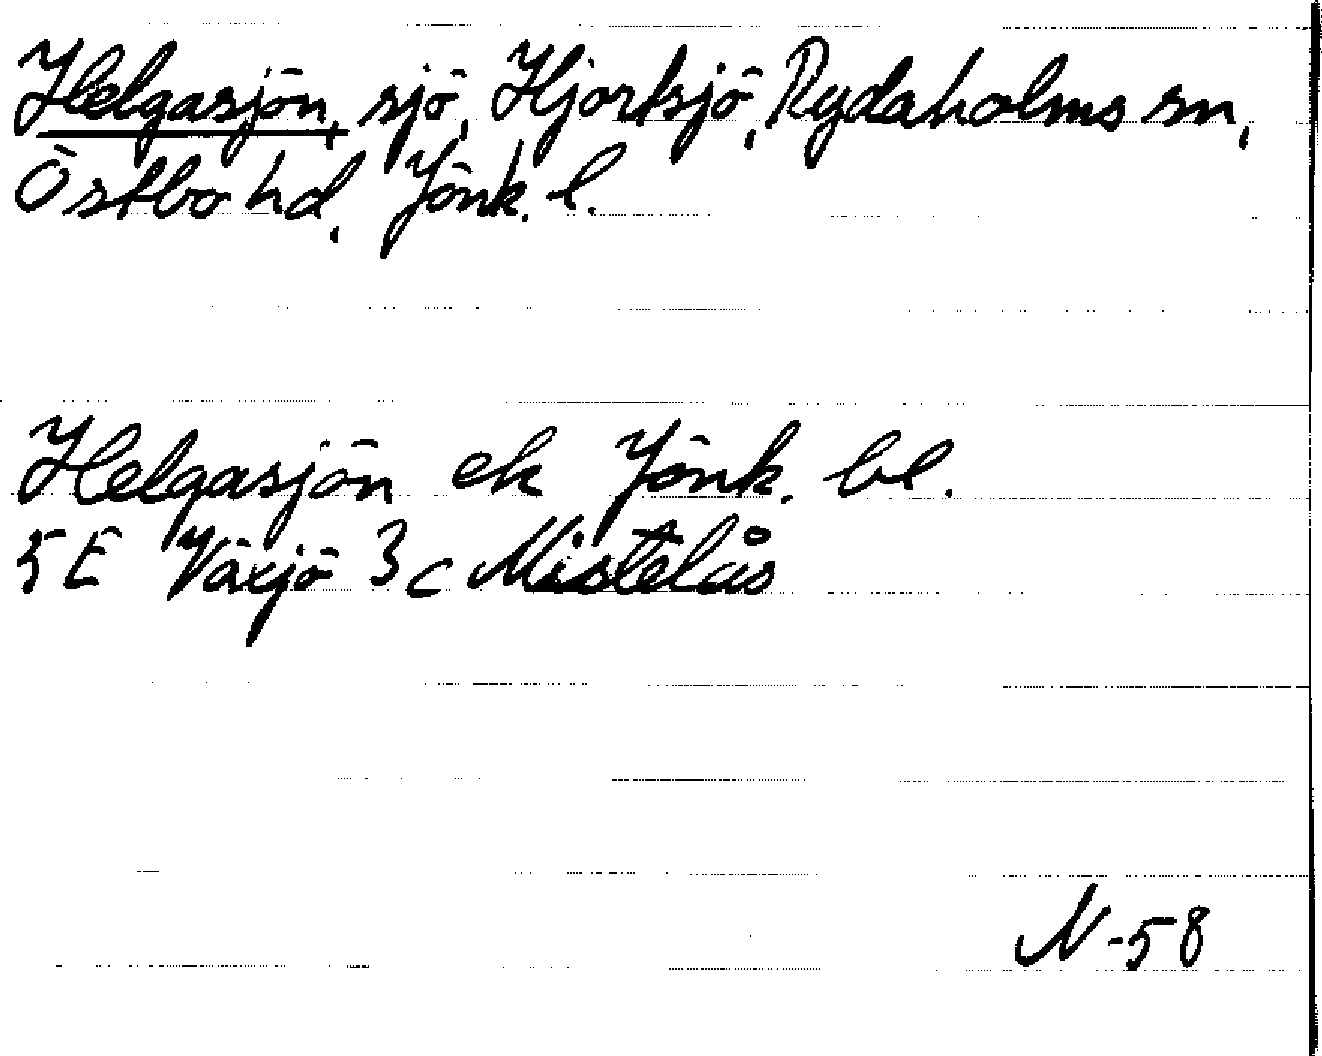 Helgasjön, sjö, Hjortsjö, Rydaholms sn,
Östbo hd, Jönk. l.
Helgasjön ek Jönk. bl.
5E Växjö 3c Mistelås
N-58